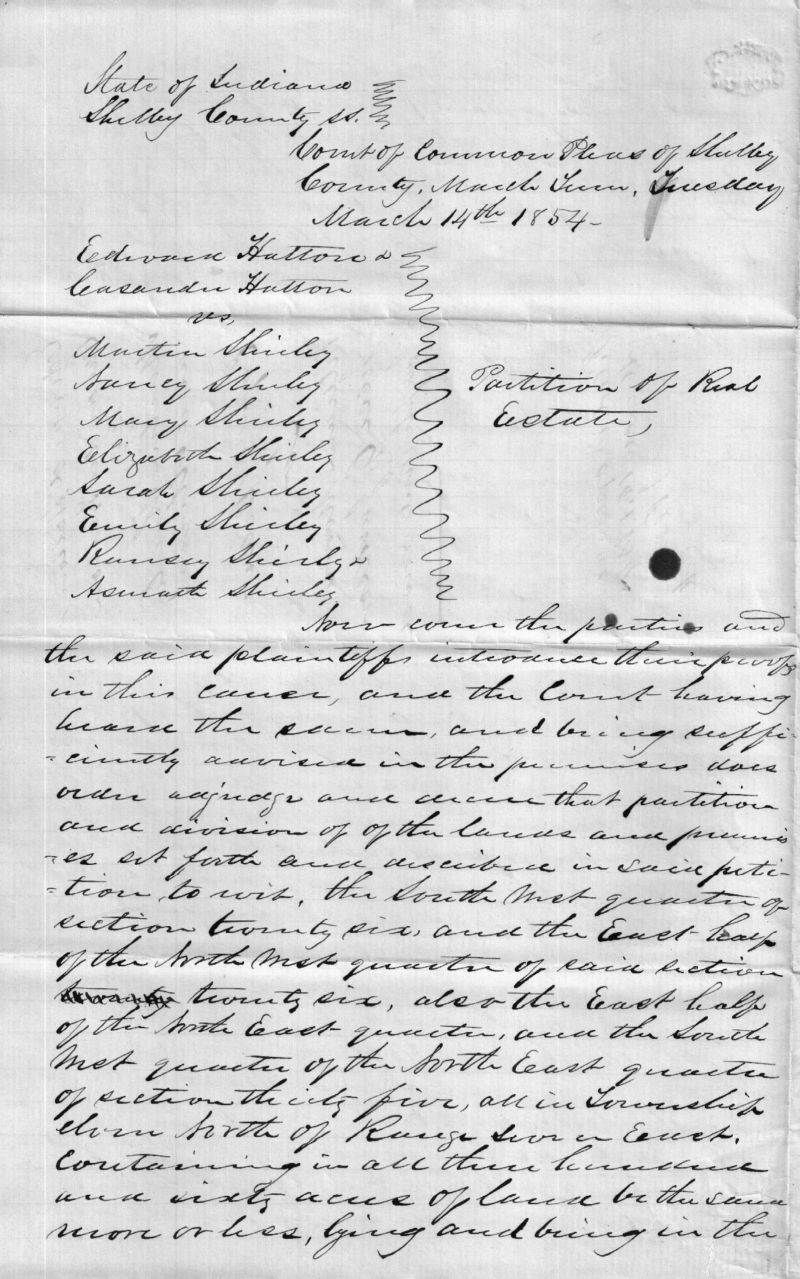 State of Indiana
Shelby County ss.
Court of Common Pleas of Shelby
County, March Term, Tuesday
March 14th 1854-
Edward Hatton &
Casander Hatton
vs,
Martin Shirley
Nancy Shirley
Mary Shirley
Elizabeth Shirley
Sarah Shirley
Emily Shirley
Ramsey Shirley &
Shirley
Partition of Real
Estate,
Now come the parties and
the said plaintiffs introduce their proofs
in this cause, and the Court having
heard the same, and being suffi-
-ciently advised in the premises does
order adjudge and decree that partition
and division of of the lands and premis
-es set forth and described in said peti-
-tion to wit, the South West quarter of
section twenty six, and the East half
of the North West quarter of said section
twenty six, also the East half
of the North East quarter, and the South
West quarter of the North East quarter
of section thirty five, all in Township
eleven North of Range Seven East.
Containing in all three hundred
and sixty acres of land be the same
more or less, lying and being in the